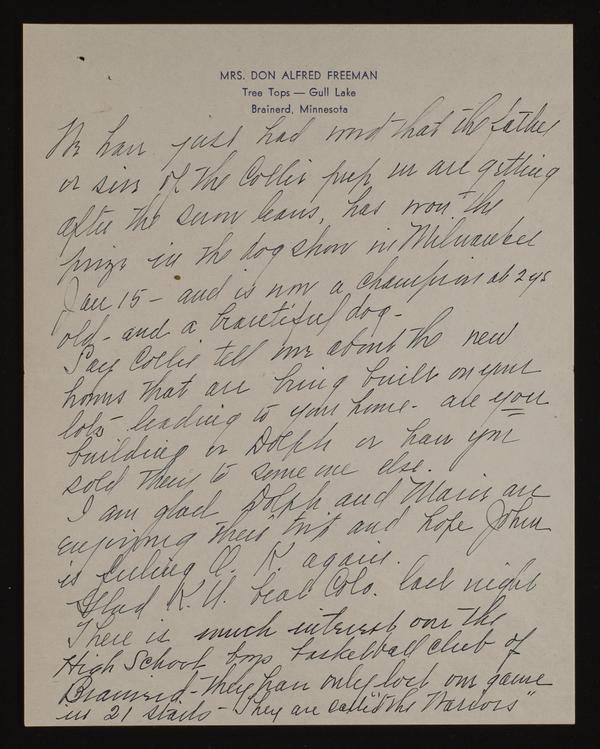 MRS. DON ALFRED FREEMAN
Tree Tops — Gull Lake
Brainerd, Minnesota
We have just had word that the father
or sire of the Collie pup we are getting
after the snow leaves, has won the
prize in the dog show in Milwaukee
Jan 15 - and is now a champion at 2 yrs
old - and a beautiful dog -
Say Collie tell me about the new
homes that are being built on your
lots leading to your home - are you
building or Dolph or have you
sold them to some one else.
I am glad Dolph and Marie are
enjoying their trip and hope John
is feeling O. K. again.
Glad K.U. beat Colo. last night
There is much interest over the
High School boys basketball club of
Brainerd - they have only lost one game
in 21 starts - They are called "the Warriors"